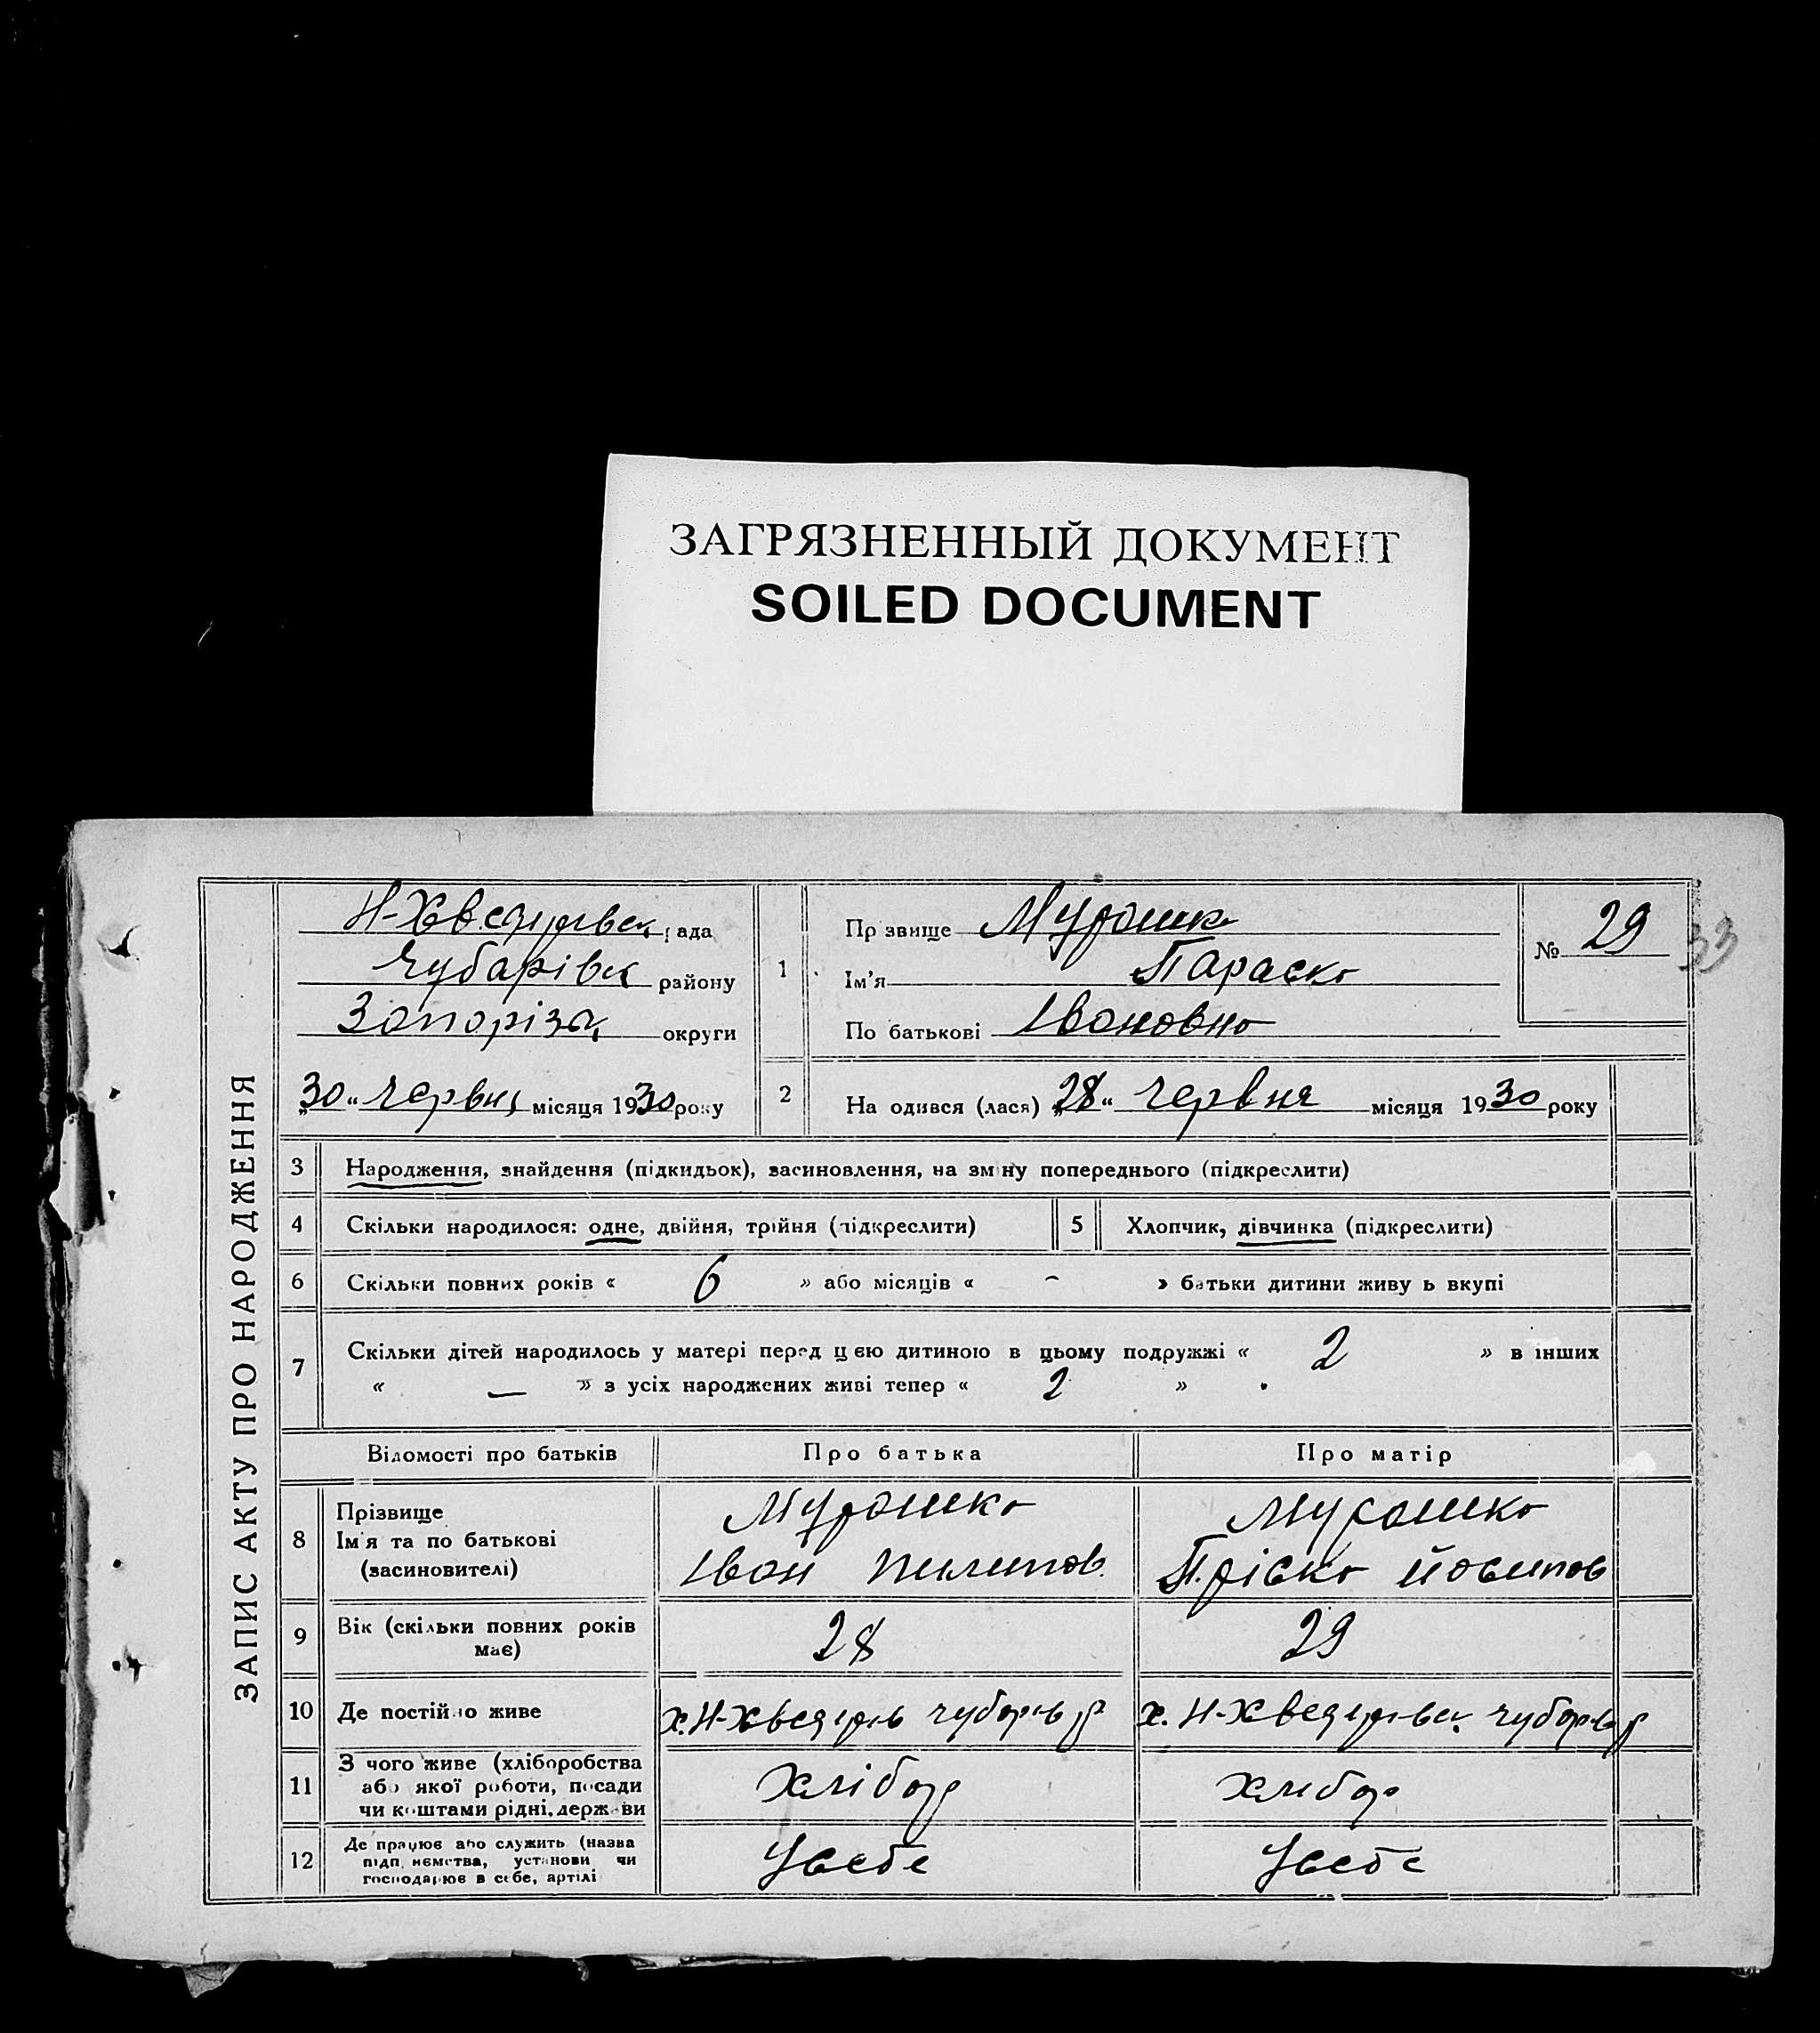 ЗАГРЯЗНЕННЫЙ ДОКУМЕНТ
SOILED DOCUMENT
ЗАПИС АКТУ ПРО НАРОДЖЕННЯ
рада
Чубарівськ району
Запорізьк округи
„30“ червня місяця 1930 року
1
Прізвище Мурашка
Ім'я Параска
По батькові Івановна
№ 29
33
2 Народився (лася) „28“ червня місяця 1930 року
3 Народження, знайдення (підкидьок), засиновлення, на зміну попереднього (підкреслити)
4 Скільки народилося: одне, двійня, трійня (підкреслити) 5 Хлопчик, дівчинка (підкреслити)
6 Скільки повних років « 6 » або місяців « – » батьки дитини живуть вкупі
7 Скільки дітей народилось у матері перед цією дитиною в цьому подружжі « 2 » в інших
« — » з усіх народжених живі тепер « 2 » .
Відомості про батьків Про батька Про матір
8 Прізвище Мурашко Мурашко
Ім'я та по батькові (засиновителі) Іван Пилипов. Пріська Йосипов
9 Вік (скільки повних років має) 28 29
10 Де постійно живе х. Н-Хведорів Чубарів р х. Н-Хведорівськ Чубарів р
11 З чого живе (хліборобства або якої роботи, посади чи коштами рідні, держави Хлібор хлібор
12 Де працює або служить (назва підприємства, установи чи господарює в себе, артілі У себе У себе